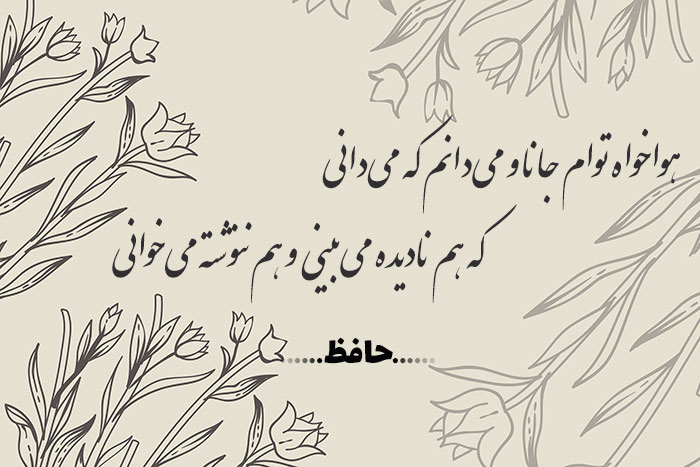 هواخواه توام جانا و می‌دانم که می‌دانی
که هم نادیده می‌بینی و هم ننوشته می‌خوانی
......حافظ......